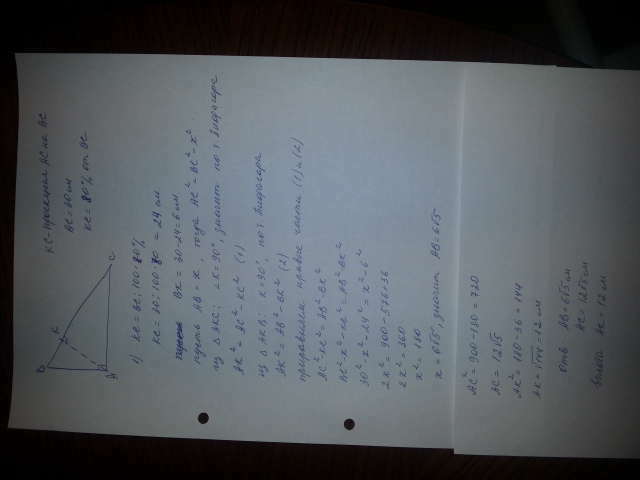 B
K
A
C
KC-проекция AC на BC
BC=30 см
KC=80% от BC
1) KC=BC:100·80%
KC=30:100·80=24 см
BK=30-24=6 см
пусть AB=x, тогда AC²=BC²-x²
из △AKC: ∠K=90°, значит по т. Пифагора
AK²=AC²-KC² (1)
из △AKB: K=90°, по т Пифагора
AK²=AB²-BK² (2)
приравняем правые части (1) и (2)
AC²-KC²=AB²-BK²
BC²-x²-KC²=AB²-BK²
30²-x²-24²=x²-6²
2x²=900-576+36
2x²=360
x²=180
x=6√5, значит AB=6√5
AC²=900-180=720
AC=12√5
AK²=180-36=144
AK=√144=12 см
AB=6√5 см
AC=12√5 см
AK=12 см